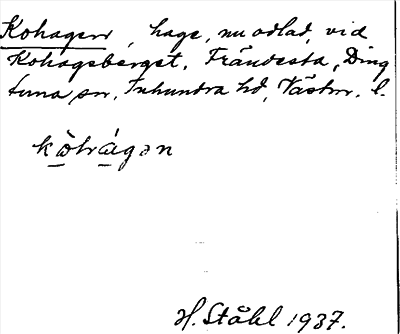 Kohagen, hage, nu odlad, vid
Kohagsberget, Frändesta, Ding
tuna sn, Tuhundra hd, Västm. l.
kòhágən
H. Ståhl 1937.